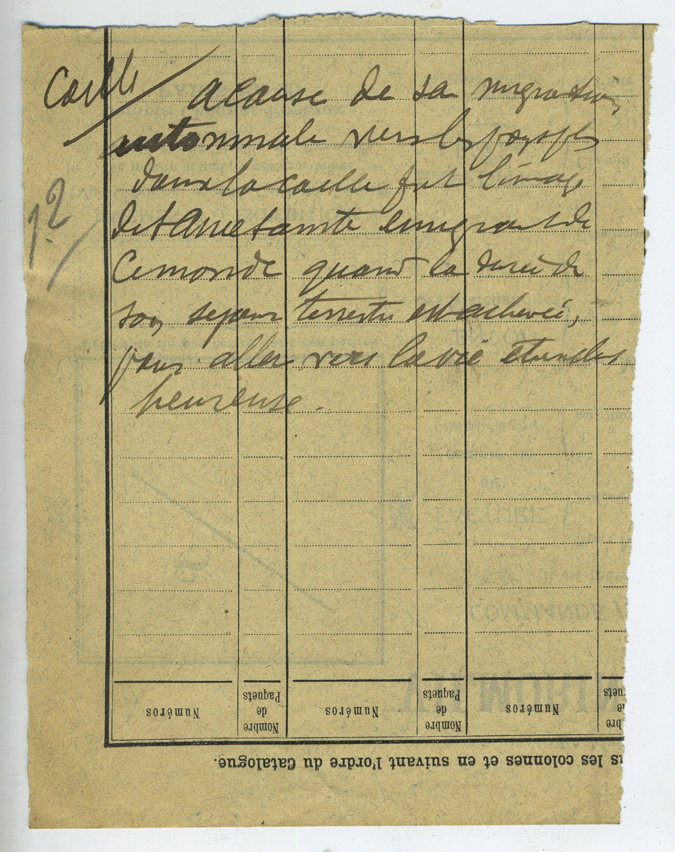 Caille
a cause de sa migration
automnale vers les pays
dans la caille fut l'imag
de l'ame sainte emigrant de
ce monde quand la durée de
son sejour terrestre est achevée,
pour aller vers la vie
heureuse.
12
Numéros
Nombre de Paquets
Numéros
Nombre de Paquets
Numéros
s les colonnes et en suivant l'ordre du Catalogue.